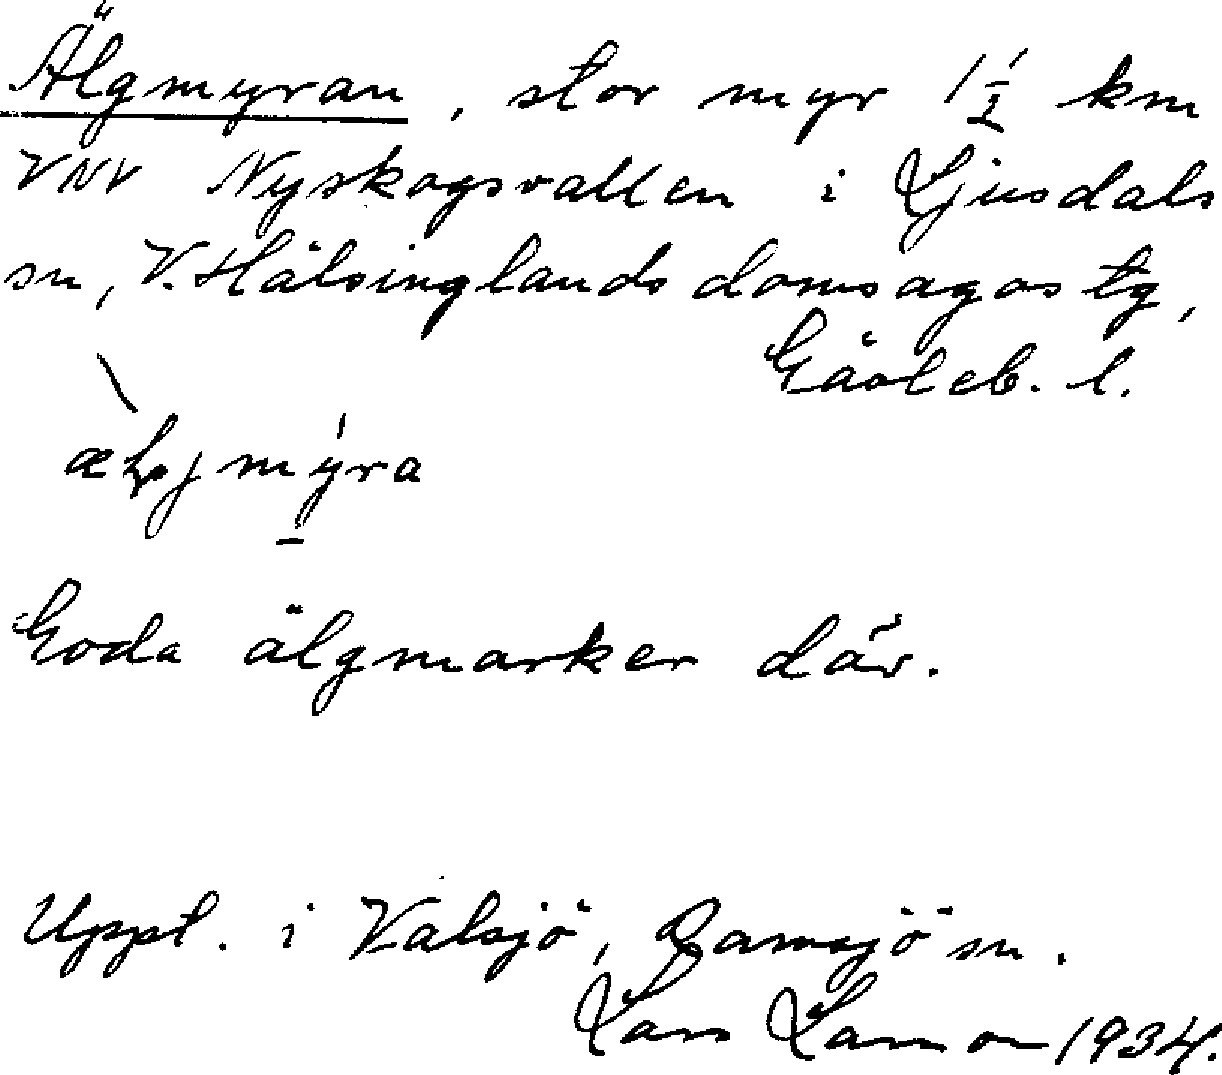 Älgmyran, stor myr 1 1/2 km
VNV Nyskogsvallen i Ljusdals
sn, V. Hälsinglands domsagas tg,
Gävleb. l.
Goda älgmarker där.
Uppt. i Valsjö, Ramsjö sn.
Lars Larson 1934.